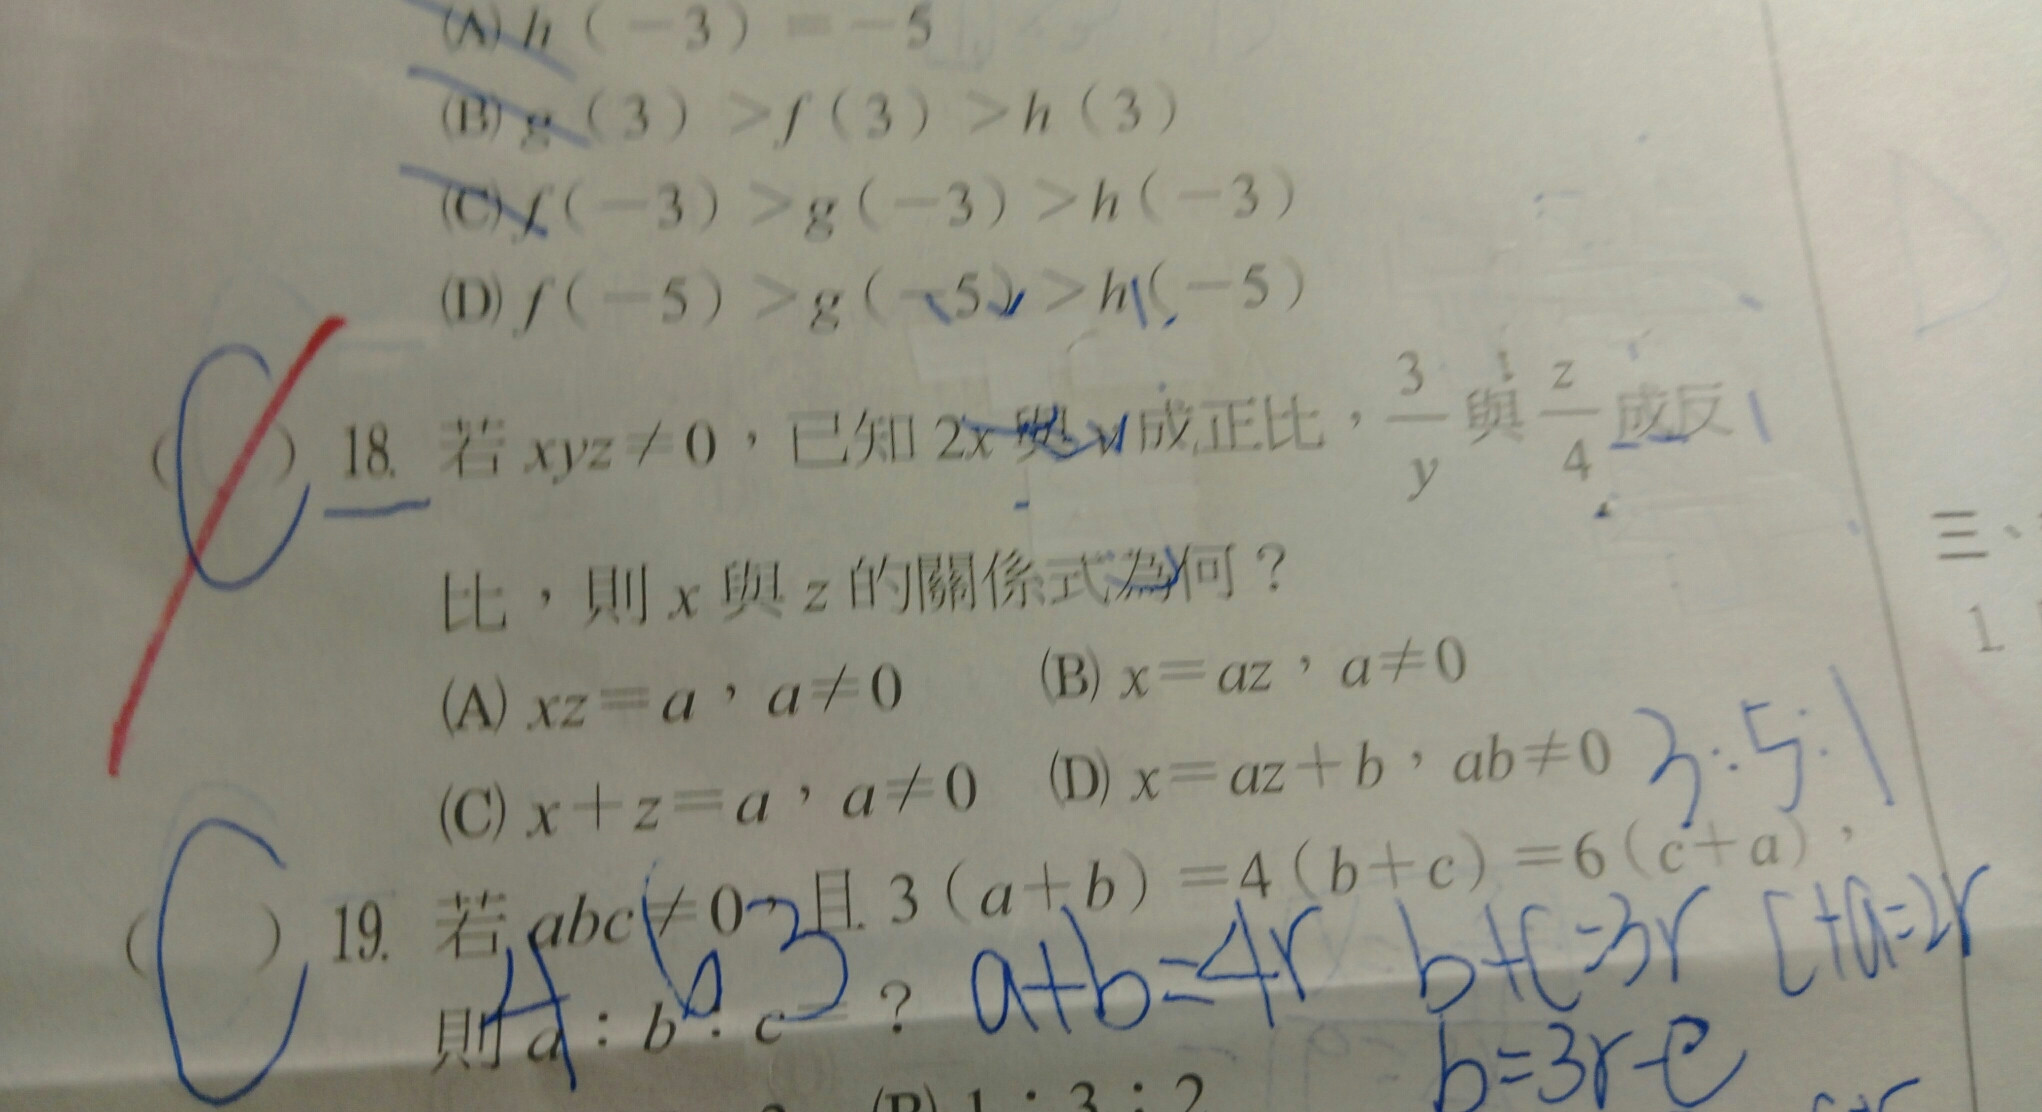 (A) h（－3）＝－5
(B) g（3）＞f（3）＞h（3）
(C) f（－3）＞g（－3）＞h（－3）
(D) f（－5）＞g（－5）＞h（－5）
（C）18. 若 xyz≠0，已知 2x 與 y 成正比，3/y 與 z/4 成反
比，則 x 與 z 的關係式為何？
(A) xz＝a，a≠0 (B) x＝az，a≠0
(C) x＋z＝a，a≠0 (D) x＝az＋b，ab≠0
3:5:1
（C）19. 若 abc≠0，且 3（a＋b）＝4（b＋c）＝6（c＋a），
4 6 3
則 a：b：c＝？
a+b=4r b+c=3r c+a=2r
b=3r-c
(B) 1：3：2
三、
1